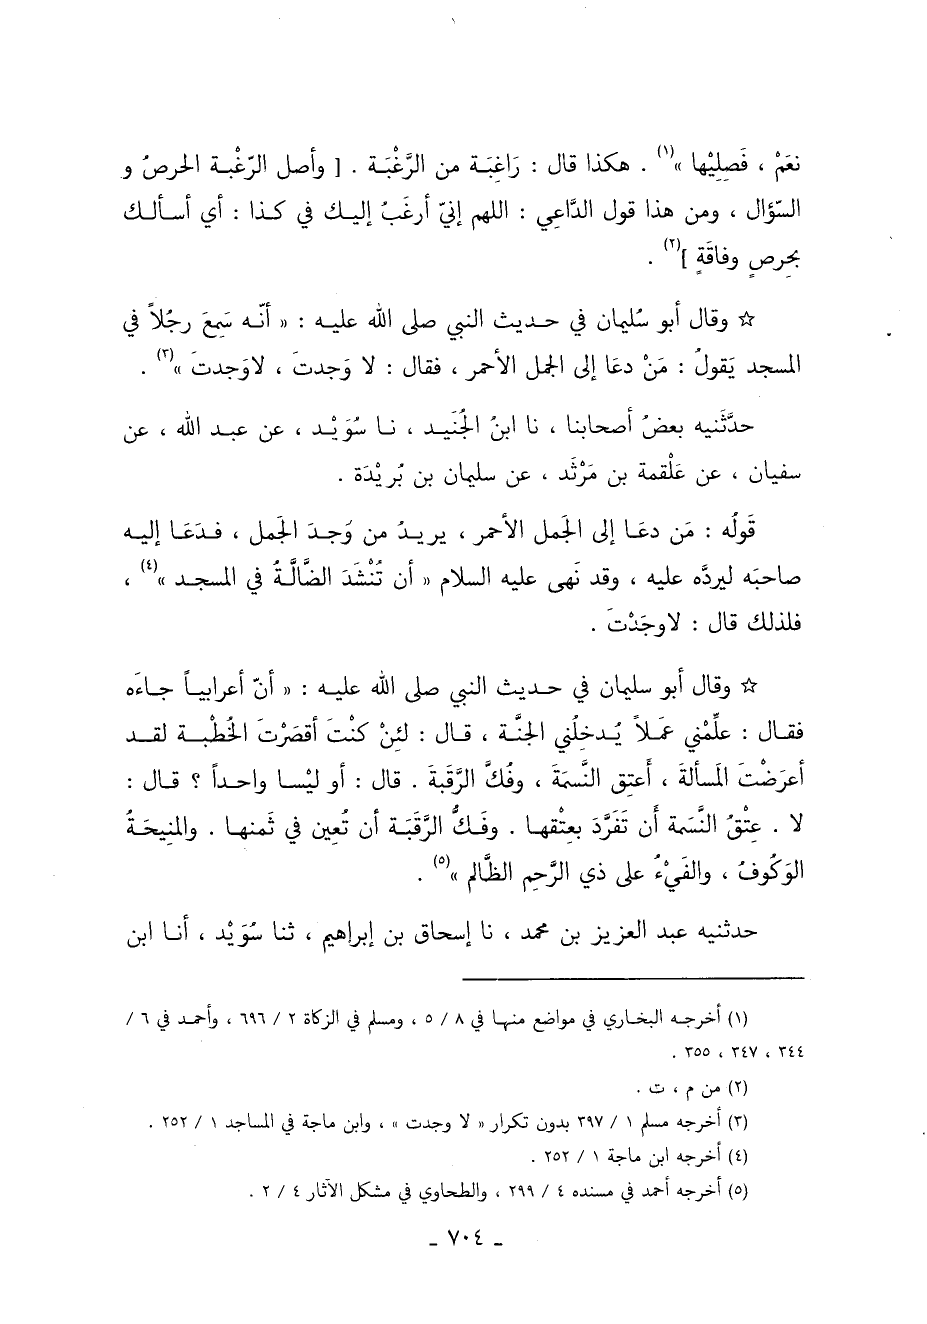 نعَمْ ، فَصِلِيْها »(١) . هكذا قال : رَاغِبَة من الرَّغْبَة . [ وأصل الرّغْبة الحرصُ و
السّؤال ، ومن هذا قول الدَّاعِي : اللهم إنيّ أرغَبُ إليك في كذا : أي أسألك
بحِرصٍ وفاقَةٍ ](٢) .
☆ وقال أبو سُليمان في حديث النبي صلى الله عليه : « أنّه سَمِعَ رجُلاً في
المسجد يَقولُ : مَنْ دعَا إلى الجمل الأحمر ، فقال : لا وَجدتَ ، لاوَجدتَ »(٣) .
حدَّثَنيه بعضُ أصحابنا ، نا ابنُ الجُنَيد ، نا سُوَيْد ، عن عبد الله ، عن
سفيان ، عن عَلْقمة بن مَرْثَد ، عن سليمان بن بُريْدَة .
قَولُه : مَن دعَا إلى الجَمل الأحمر ، يريدُ من وَجدَ الجَمل ، فدَعَا إليه
صاحبَه ليردَّه عليه ، وقد نَهى عليه السلام « أن تُنْشَدَ الضَّالَّةُ في المسجد »(٤) ،
فلذلك قال : لاوجَدْتَ .
☆ وقال أبو سليمان في حديث النبي صلى الله عليه : « أنّ أعرابياً جاءَه
فقال : علِّمْني عَملاً يُدخلُني الجنَّة ، قال : لئِنْ كنْتَ أقصَرْتَ الخُطْبة لقد
أعرَضْتَ المَسألةَ ، أَعتِق النَّسمَة ، وفُكَّ الرَّقبَةَ . قال : أو ليْسا واحداً ؟ قال :
لا . عِتْقُ النَّسمة أَن تَفَرَّدَ بعِتْقها . وفَكُّ الرَّقَبَة أن تُعِين في ثَمنها . والمنِيحَةُ
الوَكُوفُ ، والفَيْءُ على ذي الرَّحِم الظَّالم »(٥) .
حدثنيه عبد العزيز بن محمد ، نا إسحاق بن إبراهيم ، ثنا سُوَيْد ، أنا ابن
(١) أخرجه البخاري في مواضع منها في ٨ / ٥ ، ومسلم في الزكاة ٢ / ٦٩٦ ، وأحمد في ٦ /
٣٤٤ ، ٣٤٧ ، ٣٥٥ .
(٢) من م ، ت .
(٣) أخرجه مسلم ١ / ٣٩٧ بدون تكرار « لا وجدت » ، وابن ماجة في المساجد ١ / ٢٥٢ .
(٤) أخرجه ابن ماجة ١ / ٢٥٢ .
(٥) أخرجه أحمد في مسنده ٤ / ٢٩٩ ، والطحاوي في مشكل الآثار ٤ / ٢ .
ـ ٧٠٤ ـ